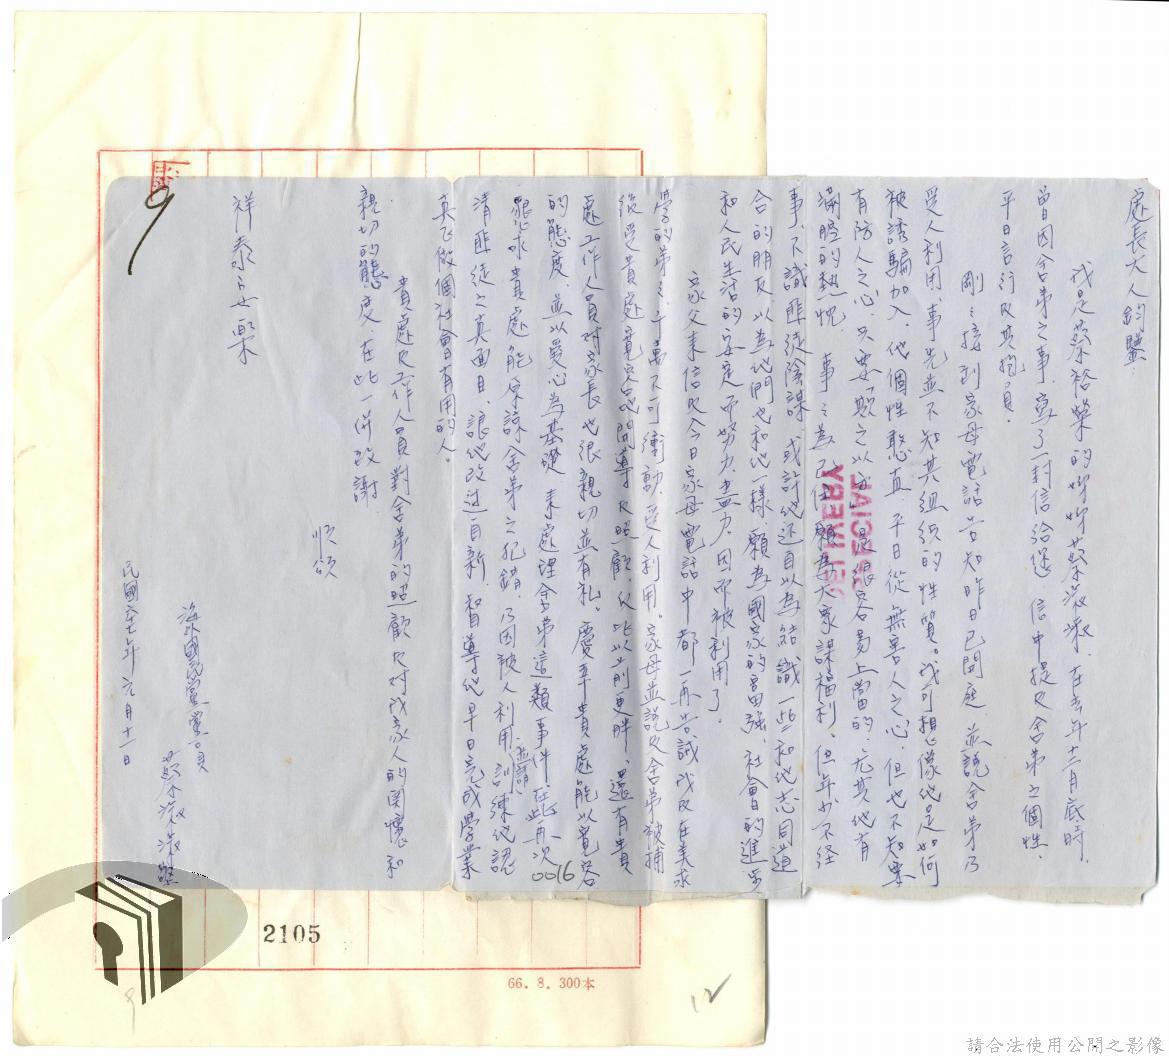 處長大人鈞鑒
我是蔡裕榮的姊姊蔡淑淑，在去年十二月底時，
曾因舍弟之事，寫了一封信給您，信中提及舍弟之個性，
平日言行及其抱負。
剛剛接到家母電話告知昨日已開庭，並說舍弟乃
受人利用，事先並不知其組織的性質。我可想像他是如何
被誘騙加入，他個性憨直，平日從無害人之心，但也不知要
有防人之心，只要欺之以方，是很容易上當的，尤其他有
滿腔的熱忱，事事為己任，願為大家謀福利，但年少不經
事，不識匪徒陰謀，或許他還自以為結識一些和他志同道
合的朋友，以為他們也和他一樣，願為國家的富強，社會的進步
和人民生活的安定而努力盡力，因而被利用了。
家父來信及今日家母電話中都一再告誡我及在美求
學的弟弟，千萬不可衝動，受人利用。家母並說及舍弟被捕
後受貴處寬容地開導及照顧，父比以前更胖，還有貴
處工作人員對家長也很親切並有礼。慶幸貴處能以寬容
的態度，並以愛心為基礎，來處理舍弟這類事件，在此再次
懇求貴處能原諒舍弟之犯錯，乃因被人利用，並請訓練他認
清匪徒之真面目，讓他改過自新，督導他早日完成學業
真正做個社會有用的人。
貴處及工作人員對舍弟的照顧及對我家人的関懷和
親切的態度，在此一併致謝。
順頌
祥泰安樂
海外國民黨黨員
蔡淑淑敬
民國六十七年元月十一日
SPECIAL
DELIVERY
0016
9
2105
66. 8. 300本
12
9
請合法使用公開之影像